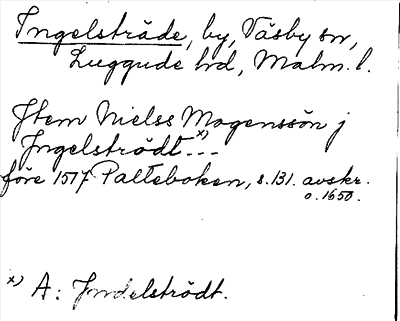 Ingelsträde, by, Väsby sn,
Luggude hd, Malm. l.
Jtem Nielss Mogenssön j
Jngelströdt x) ---
före 1517 Palteboken, s. 131. avskr.
o. 1650.
x) A: Jndelströdt.